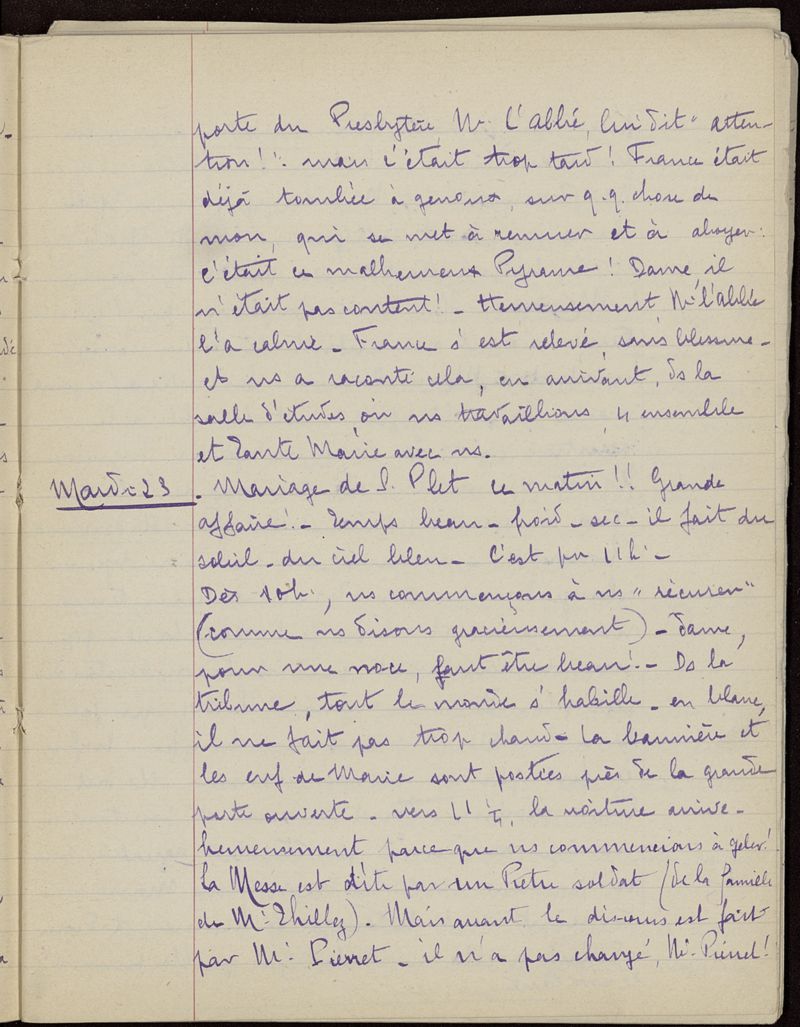 porte du Presbytère, Mr L'abbé, lui dit "atten-
tion!". mais c'était trop tard! France était
déjà tombée à genoux, sur q.q. chose de
mou, qui se met à remuer et à aboyer:
c'était ce malheureux Pyrame! Dame, il
n'était pas content! - Heureusement Mr l'abbé
l'a calmé - France s'est relevé, sans blessure -
et ns a raconté cela, en arrivant, ds la
salle d'études, où ns travaillions, 4 ensemble
et Tante Marie avec ns.
Mardi 23 . Mariage de S. Plet ce matin!! Grande
affaire! - Temps beau - froid - sec - il fait du
soleil - du ciel bleu - C'est pr 11h. -
Dès 10h., ns commençons à ns "récurer"
(comme ns disons gracieusement) - dame,
pour une noce, faut être beau! - Ds la
tribune, tout le monde s'habille - en blanc,
il ne fait pas trop chaud - La bannière et
les enf de Marie sont postées près de la grande
porte ouverte - vers 11 1/4, la voiture arrive -
heureusement parce que ns commencions à geler!
La Messe est dite par un Prêtre soldat (de la famille
de Mr Thillez). Mais avant le discours est fait
par Mr Pierret - il n'a pas changé, Mr Pierret!